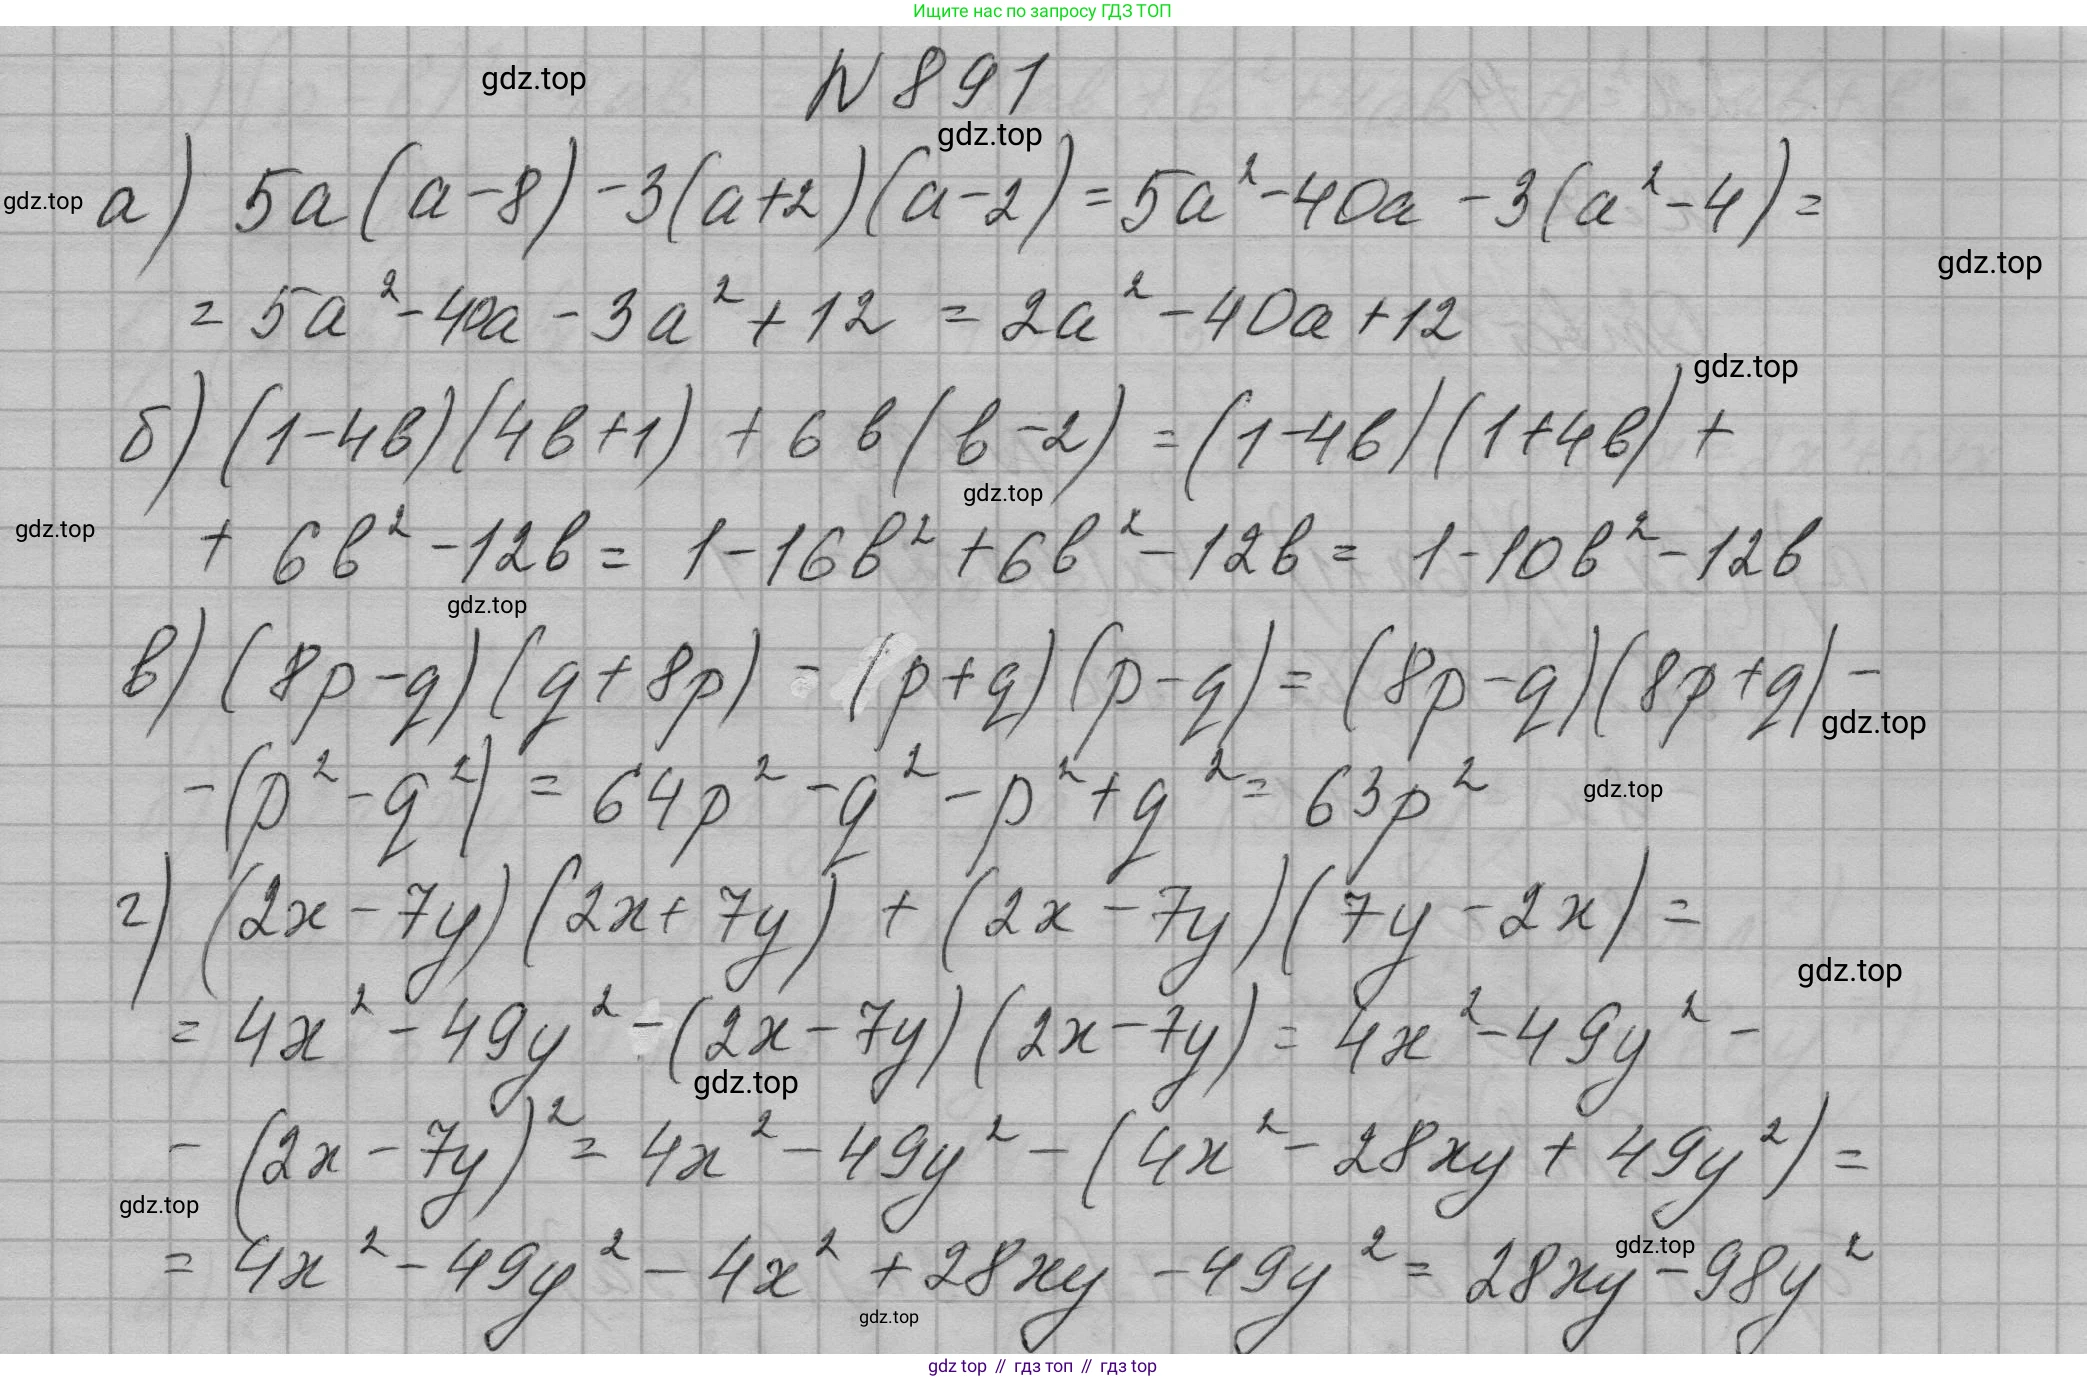 Ищите нас по запросу ГДЗ ТОП
N 891
gdz.top
gdz.top
gdz.top
а) 5a(a-8)-3(a+2)(a-2)=5a²-40a-3(a²-4)=
gdz.top
=5a²-40a-3a²+12=2a²-40a+12
gdz.top
б) (1-4в)(4в+1)+6в(в-2)=(1-4в)(1+4в)+
gdz.top
gdz.top
+6в²-12в=1-16в²+6в²-12в=1-10в²-12в
gdz.top
в) (8p-q)(q+8p)-(p+q)(p-q)=(8p-q)(8p+q)-
gdz.top
-(p²-q²)=64p²-q²-p²+q²=63p²
gdz.top
г) (2x-7y)(2x+7y)+(2x-7y)(7y-2x)=
gdz.top
=4x²-49y²-(2x-7y)(2x-7y)=4x²-49y²-
gdz.top
-(2x-7y)²=4x²-49y²-(4x²-28xy+49y²)=
gdz.top
gdz.top
=4x²-49y²-4x²+28xy-49y²=28xy-98y²
gdz.top
gdz top // гдз топ // гдз top